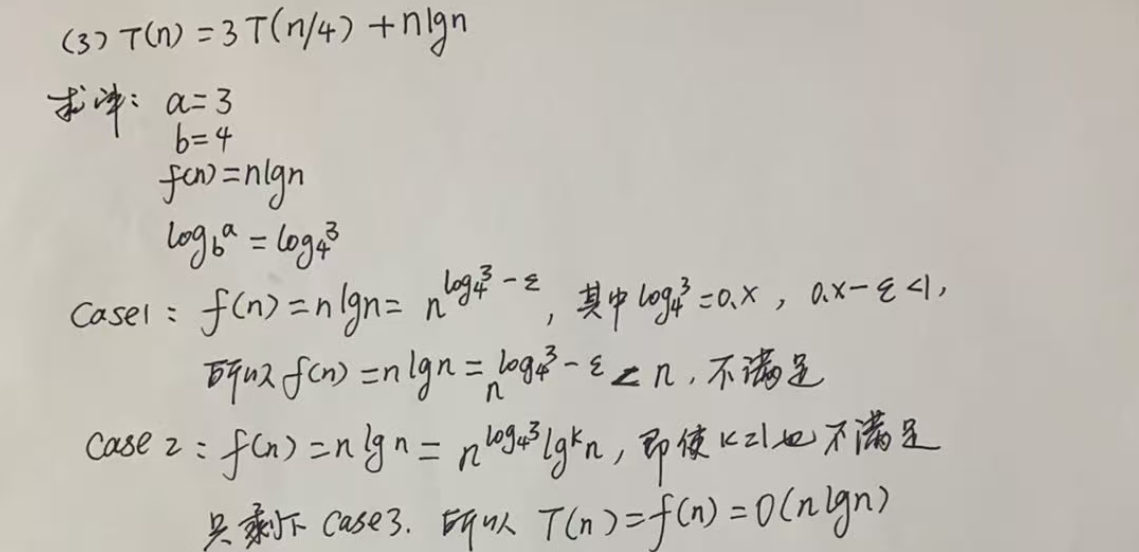 (3) T(n) = 3T(n/4) + nlgn
求解: a=3
b=4
f(n)=nlgn
log_b^a = log_4^3
Case1: f(n)=nlgn= n^{log_4^3 - ε}, 其中 log_4^3=0.x, 0.x-ε<1,
所以 f(n)=nlgn= n^{log_4^3 - ε} < n, 不满足
Case 2: f(n)=nlgn= n^{log_4^3} lg^k n, 即使k=1也不满足
只剩下 Case3. 所以 T(n)=f(n)=O(nlgn)